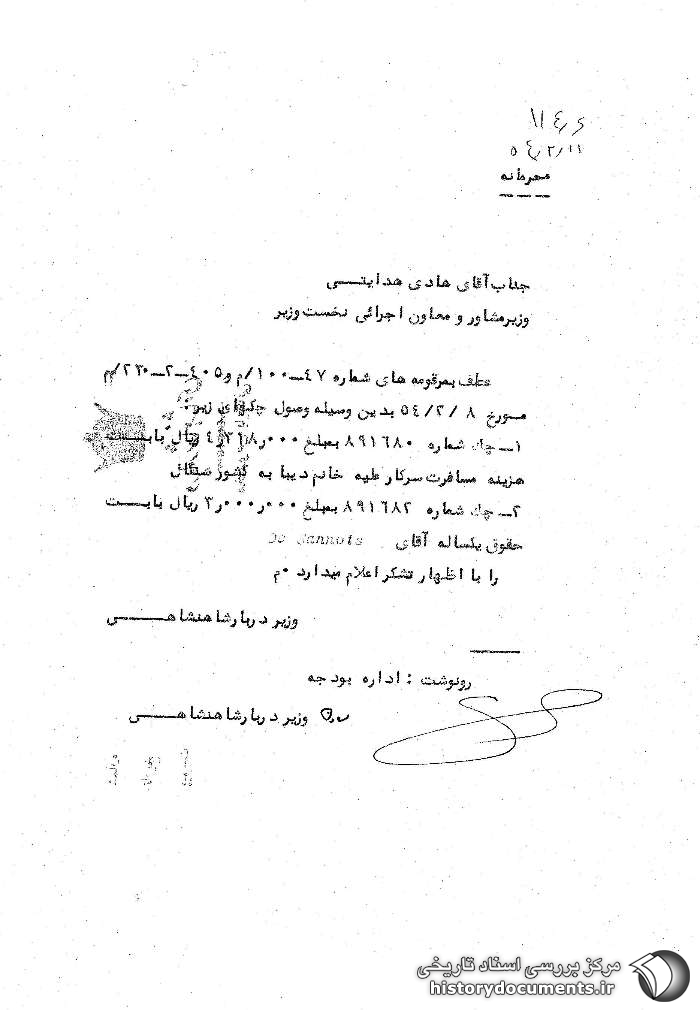 ۵۴/۲/۱۱
محرمانه
جناب آقای هادی هدایتی
وزیر مشاور و معاون اجرائی نخست وزیر
عطف بمرقومه های شماره ۴۷ــ۱۰۰/م و ۴۰۵ــ۲ــ۲۳۰/م
مورخ ۵۴/۲/۸ بدین وسیله وصول چکهای زیر :
۱ــ چک شماره ۸۹۱۶۸۰ بمبلغ ریال بابت
هزینه مسافرت سرکار علیه خانم دیبا به کشور سنگال
۲ــ چک شماره ۸۹۱۶۸۲ بمبلغ ۳ر۰۰۰ر۰۰۰ ریال بابت
حقوق یکساله آقای
را با اظهار تشکر اعلام میدارد ۰م
وزیر دربار شاهنشاهی
رونوشت : اداره بودجه
وزیر دربار شاهنشاهی
مرکز بررسی اسناد تاریخی
historydocuments.ir